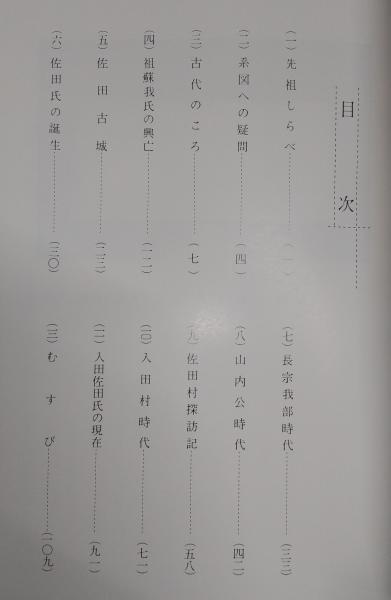 目次
(一)先祖しらべ…………(一)
(二)系図への疑問…………(四)
(三)古代のころ…………(七)
(四)祖蘇我氏の興亡…………(一二)
(五)佐田古城…………(二三)
(六)佐田氏の誕生…………(三〇)
(七)長宗我部時代…………(三三)
(八)山内公時代…………(四二)
(九)佐田村探訪記…………(五八)
(一〇)入田村時代…………(七一)
(一一)入田佐田氏の現在…………(九一)
(一二)むすび…………(一〇九)